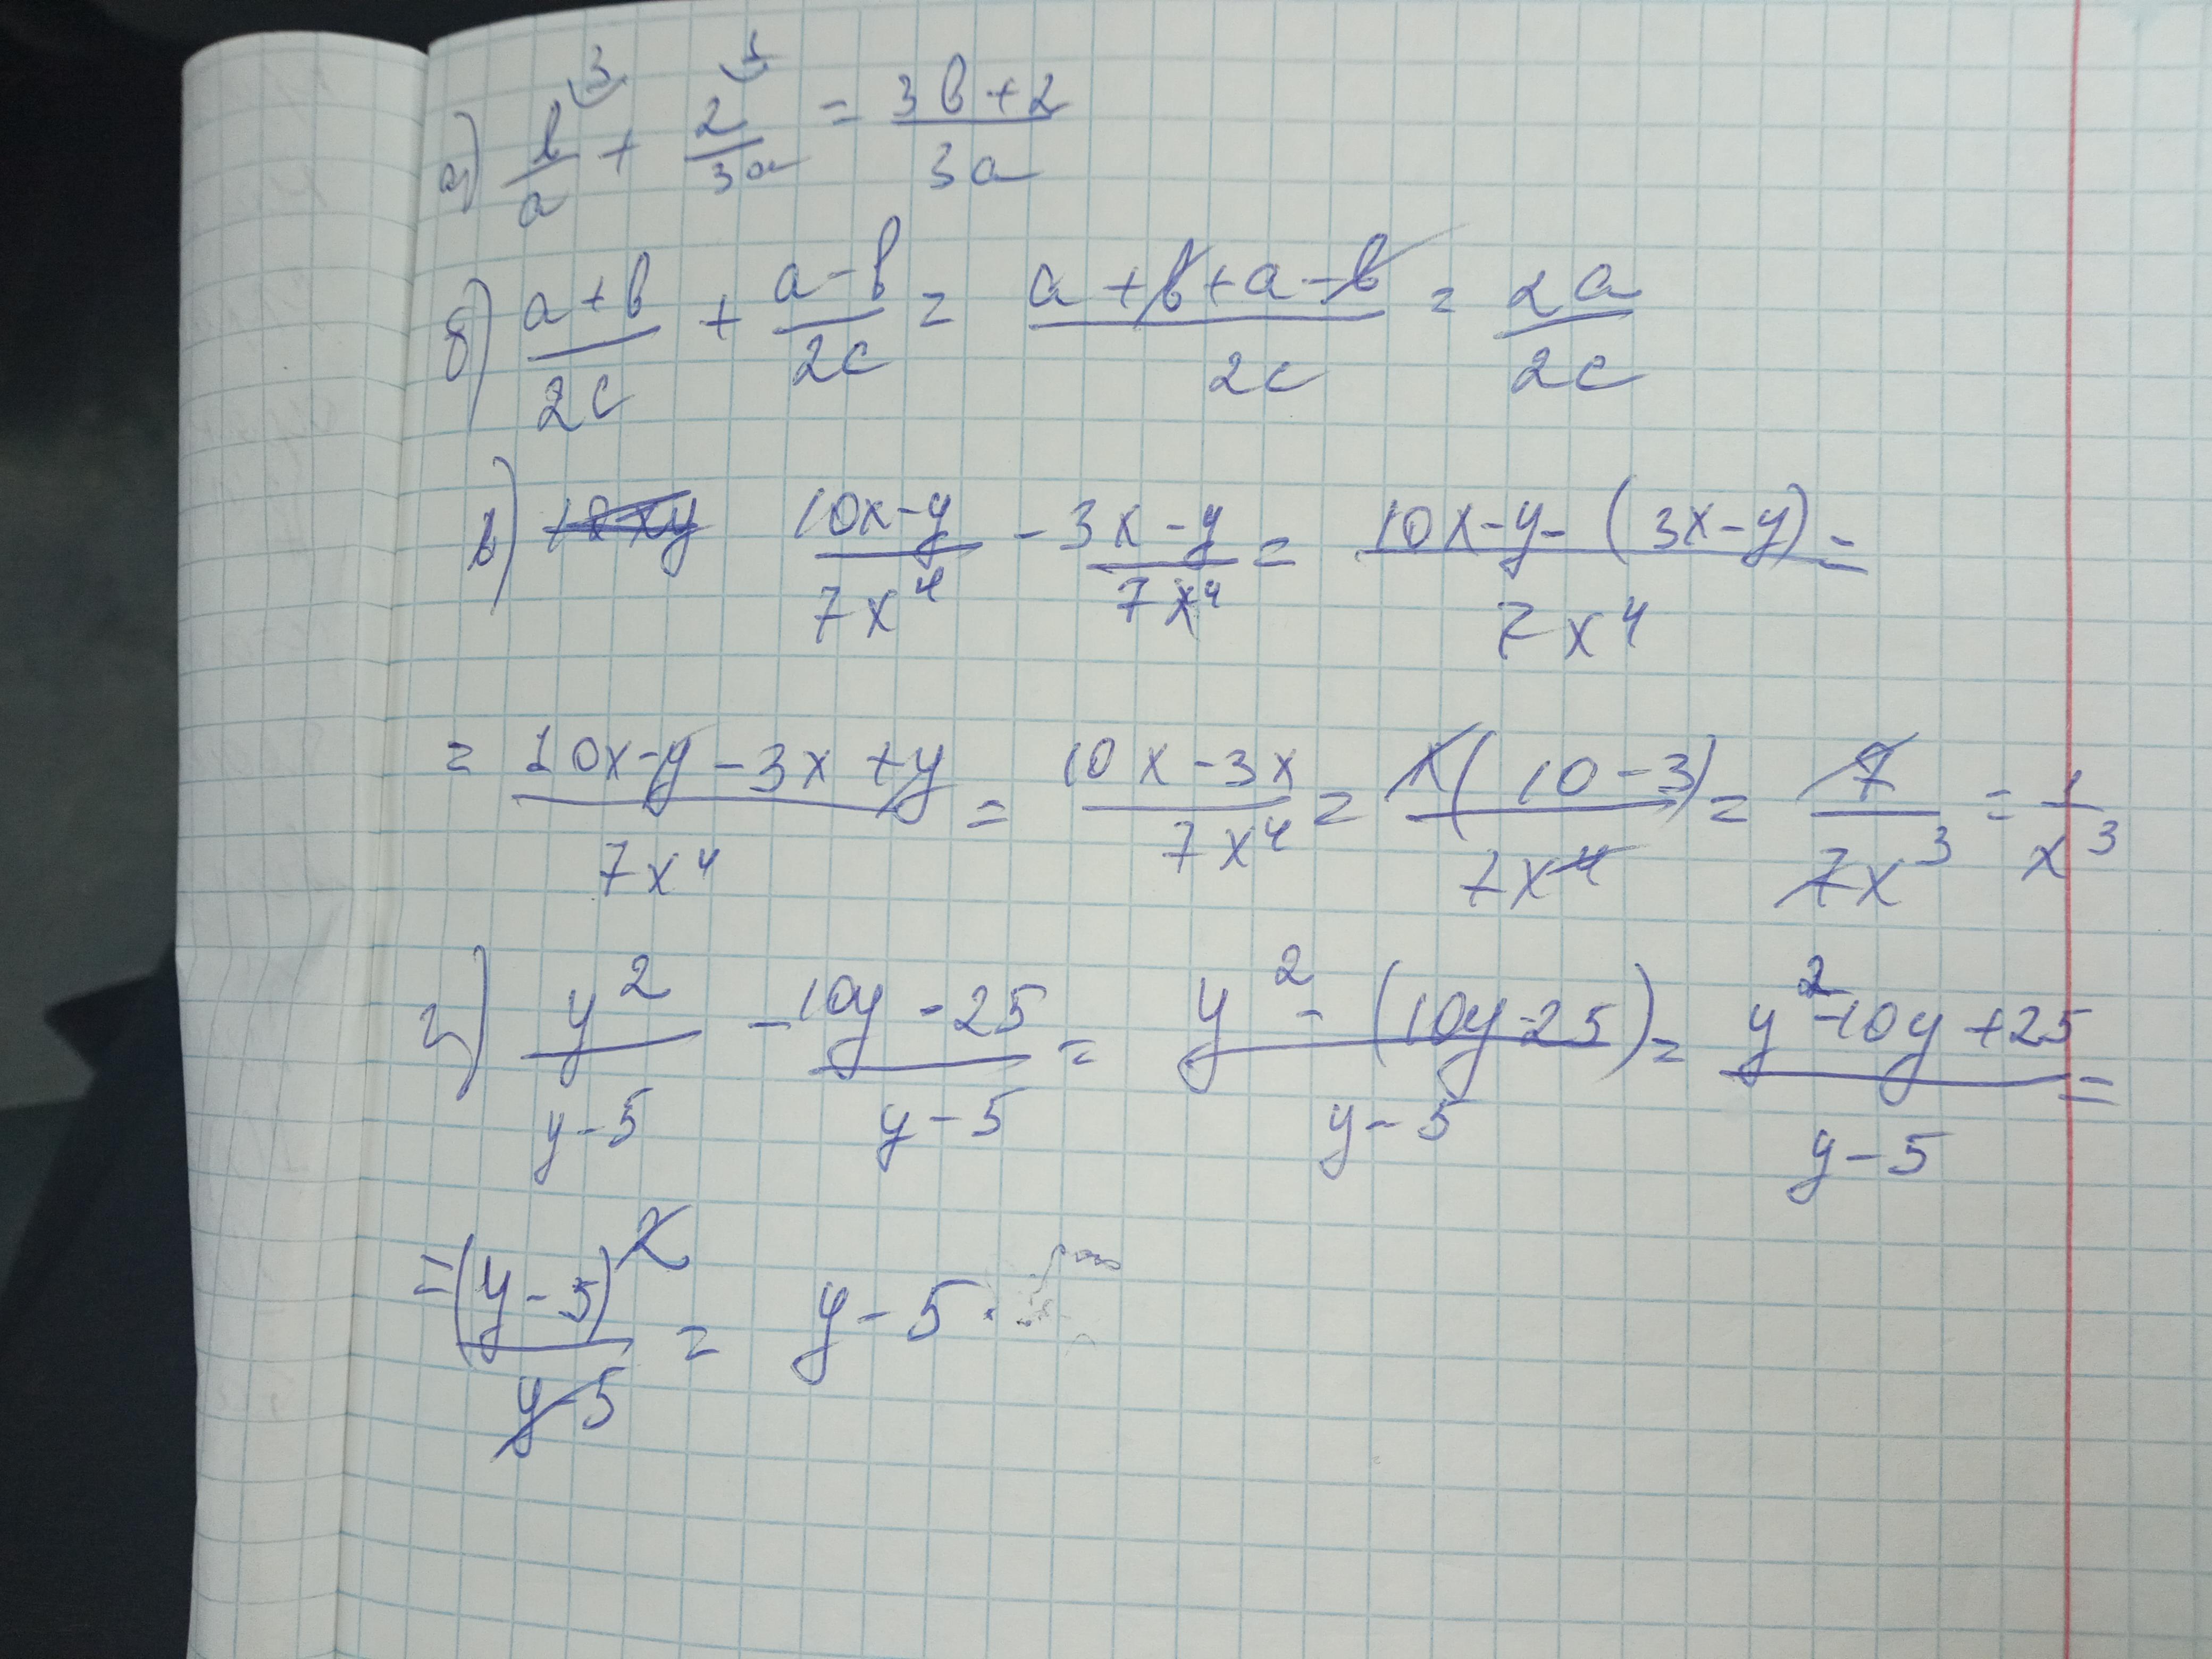 а) b/a ^3 + 2/3a ^1 = 3b+2/3a
б) a+b/2c + a-b/2c = a+b+a-b/2c = 2a/2c
в) 10x-y/7x⁴ - 3x-y/7x⁴ = 10x-y-(3x-y)/7x⁴ =
= 10x-y-3x+y/7x⁴ = 10x-3x/7x⁴ = x(10-3)/7x⁴ = 7/7x³ = 1/x³
г) y²/y-5 - 10y-25/y-5 = y²-(10y-25)/y-5 = y²-10y+25/y-5 =
= (y-5)²/y-5 = y-5.